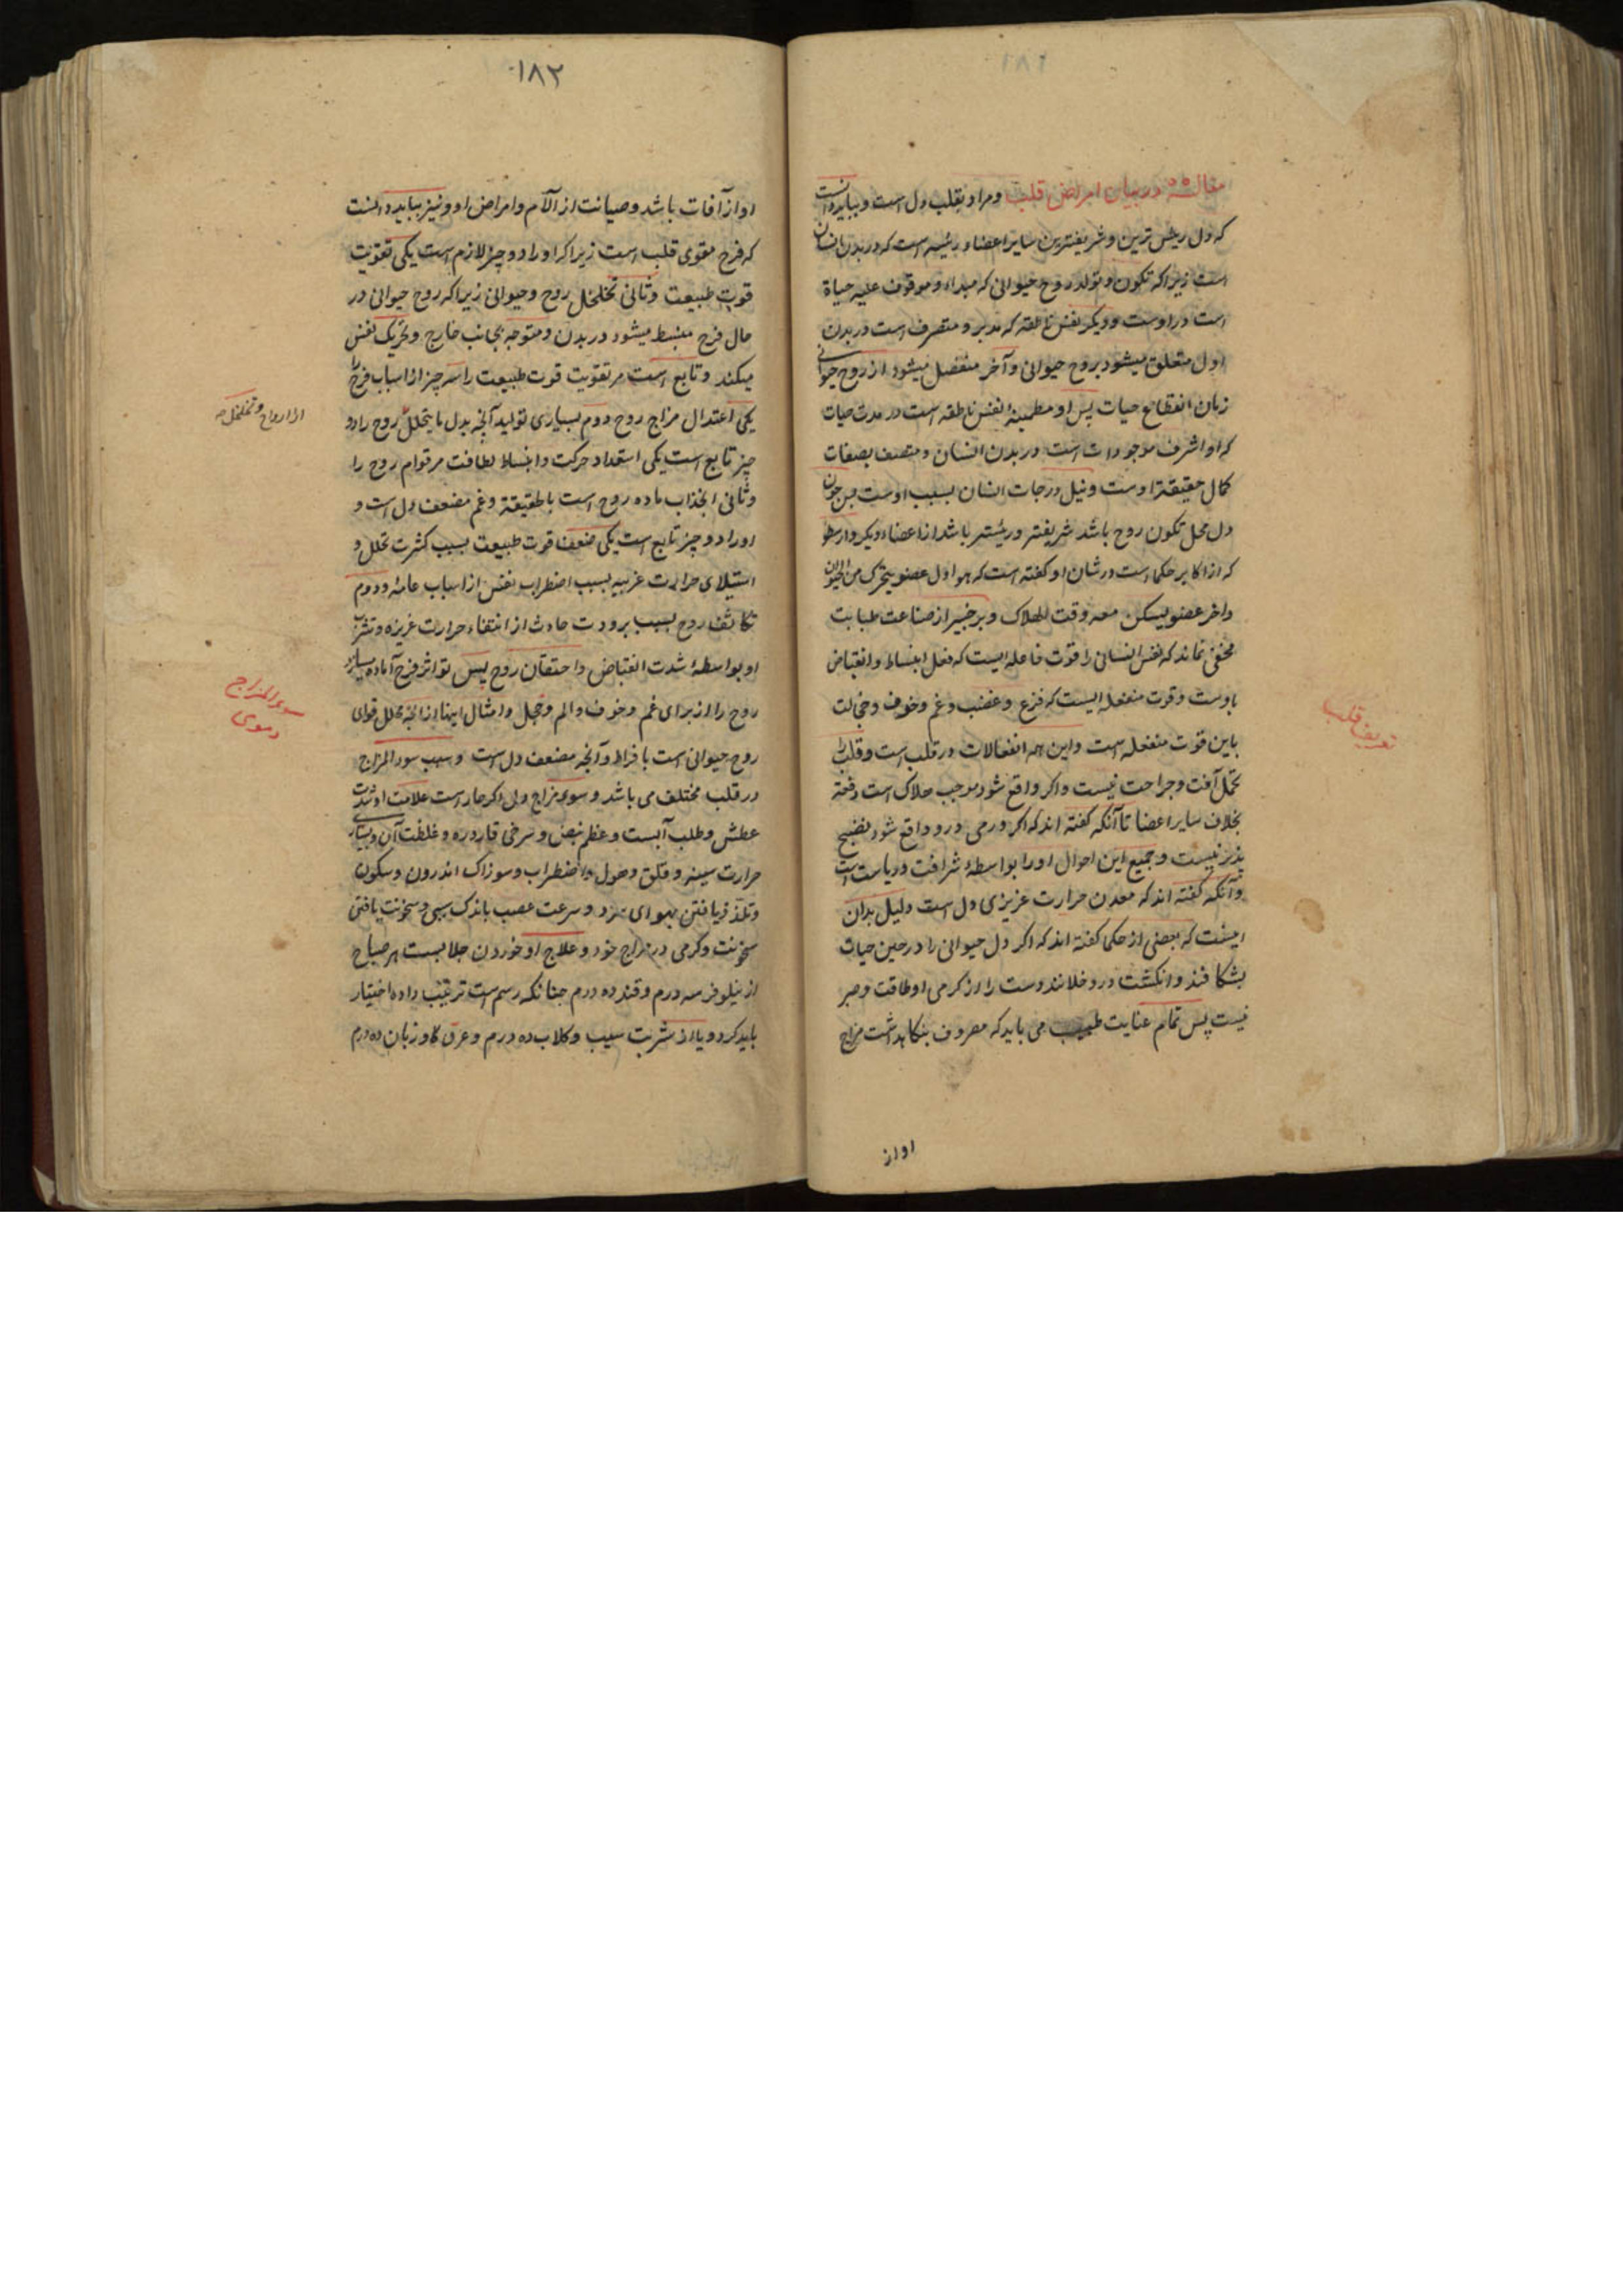 مقاله ۵ در بیان امراض قلب ومراد بقلب دل است وبباید دانست
که دل رئیس ترین وشریفترین سایر اعضاء رئیسه است که در بدن انسان
است زیرا که تکون و تولد روح حیوانی که مبداء و موقوف علیه حیاة
است در اوست ودیکر نفس ناطقه که مدبر و متصرف است در بدن
اول متعلق میشود بروح حیوانی وآخر منفصل میشود از روح حیوانی
زمان انقطاع حیات پس او مطمینه نفس ناطقه است در مدت حیات
که او اشرف موجودات است در بدن انسان ومتصف بصفات
کمال حقیقة اوست ونیل درجات انسان بسبب اوست پس چون
دل محل تکون روح باشد شریفتر ورئیستر باشد از اعضاء دیکر وارسطو
که از اکابر حکما است در شان او کفته است که هو اول عضو یتحرک من الحیوان
واخر عضو یسکن معه وقت الهلاک وبر خبیر از صناعت طبابت
مخفی نماند که نفس انسانی را قوت فاعله ایست که فعل انبساط وانقباض
باوست وقوت منفعله ایست که فزع وغضب وغم وخوف وخجالت
باین قوت منفعله است واین همه انفعالات در قلب است وقلب را
تحمل آفت وجراحت نیست واکر واقع شود موجب هلاک است دفعة
بخلاف سایر اعضا تا آنکه کفته اند که اکر ورمی درو واقع شود نضج
پذیر نیست وجمیع این احوال او را بواسطهٔ شرافت وریاست است
وآنکه کفته اند که معدن حرارت غریزی دل است دلیل بدان
اینست که بعضی از حکما کفته اند که اکر دل حیوانی را در حین حیات
بشکافند وانکشت درو خلانند دست را از کرمی او طاقت وصبر
نیست پس تمام عنایت طبیب می باید که مصروف بنکاهداشت مزاج
او از
تعریف قلب
۱۸۲
او از آفات باشد وصیانت از آلام وامراض او ونیز بباید دانست
که فرح مقوی قلب است زیرا که او را دو چیز لازم است یکی تقویت
قوت طبیعت وثانی تخلخل روح وحیوانی زیرا که روح حیوانی در
حال فرح منبسط میشود در بدن ومتوجه بجانب خارج وتحریک نفس
میکند وتابع است مر تقویت قوت طبیعت را سه چیز از اسباب فرح را
یکی اعتدال مزاج روح دوم بسیاری تولید آنچه بدل ما یتحلل روح را دو
چیز تابع است یکی استعداد حرکت وانبساط لطافت مر قوام روح را
وثانی انجذاب ماده روح است وغم مضعف دل است و
او را دو چیز تابع است یکی ضعف قوت طبیعت بسبب کثرت تحلل و
استیلای حرارت غریبه بسبب اضطراب نفس از اسباب عامه ودوم
تکاثف روح بسبب برودت حادث از انتفاء حرارت غریزه
او بواسطهٔ شدت انقباض واحتقان روح پس تواتر فرح آماده میسازد
روح را از برای غم وخوف والم وخجل وامثال اینها از آنچه محلل قوای
روح حیوانی است بافراط وآنچه مضعف دل است وسبب سوء المزاج
در قلب مختلف می باشد وسوء مزاج ولی اکر حار است علامت او شدت
عطش وطلب آبست وعظم نبض وسرخی قاروره وغلظت آن وبسیاری
حرارت سینه وقلق وهول واضطراب وسوزاک اندرون وسکون
وتلذذ یافتن بهوای سرد وسرعت عصب باندک سببی وسخونت یافتن
سخونت وکرمی در مزاج خود وعلاج او خوردن جلابست هر صباح
از نیلوفر سه درم وقند ده درم چنانکه رسم است ترتیب داده اختیار
باید کرد ویا از شربت سیب وکلاب ده درم وعرق کاوزبان ده درم
از ارواح وتخلخل
سوء المزاج
دموی